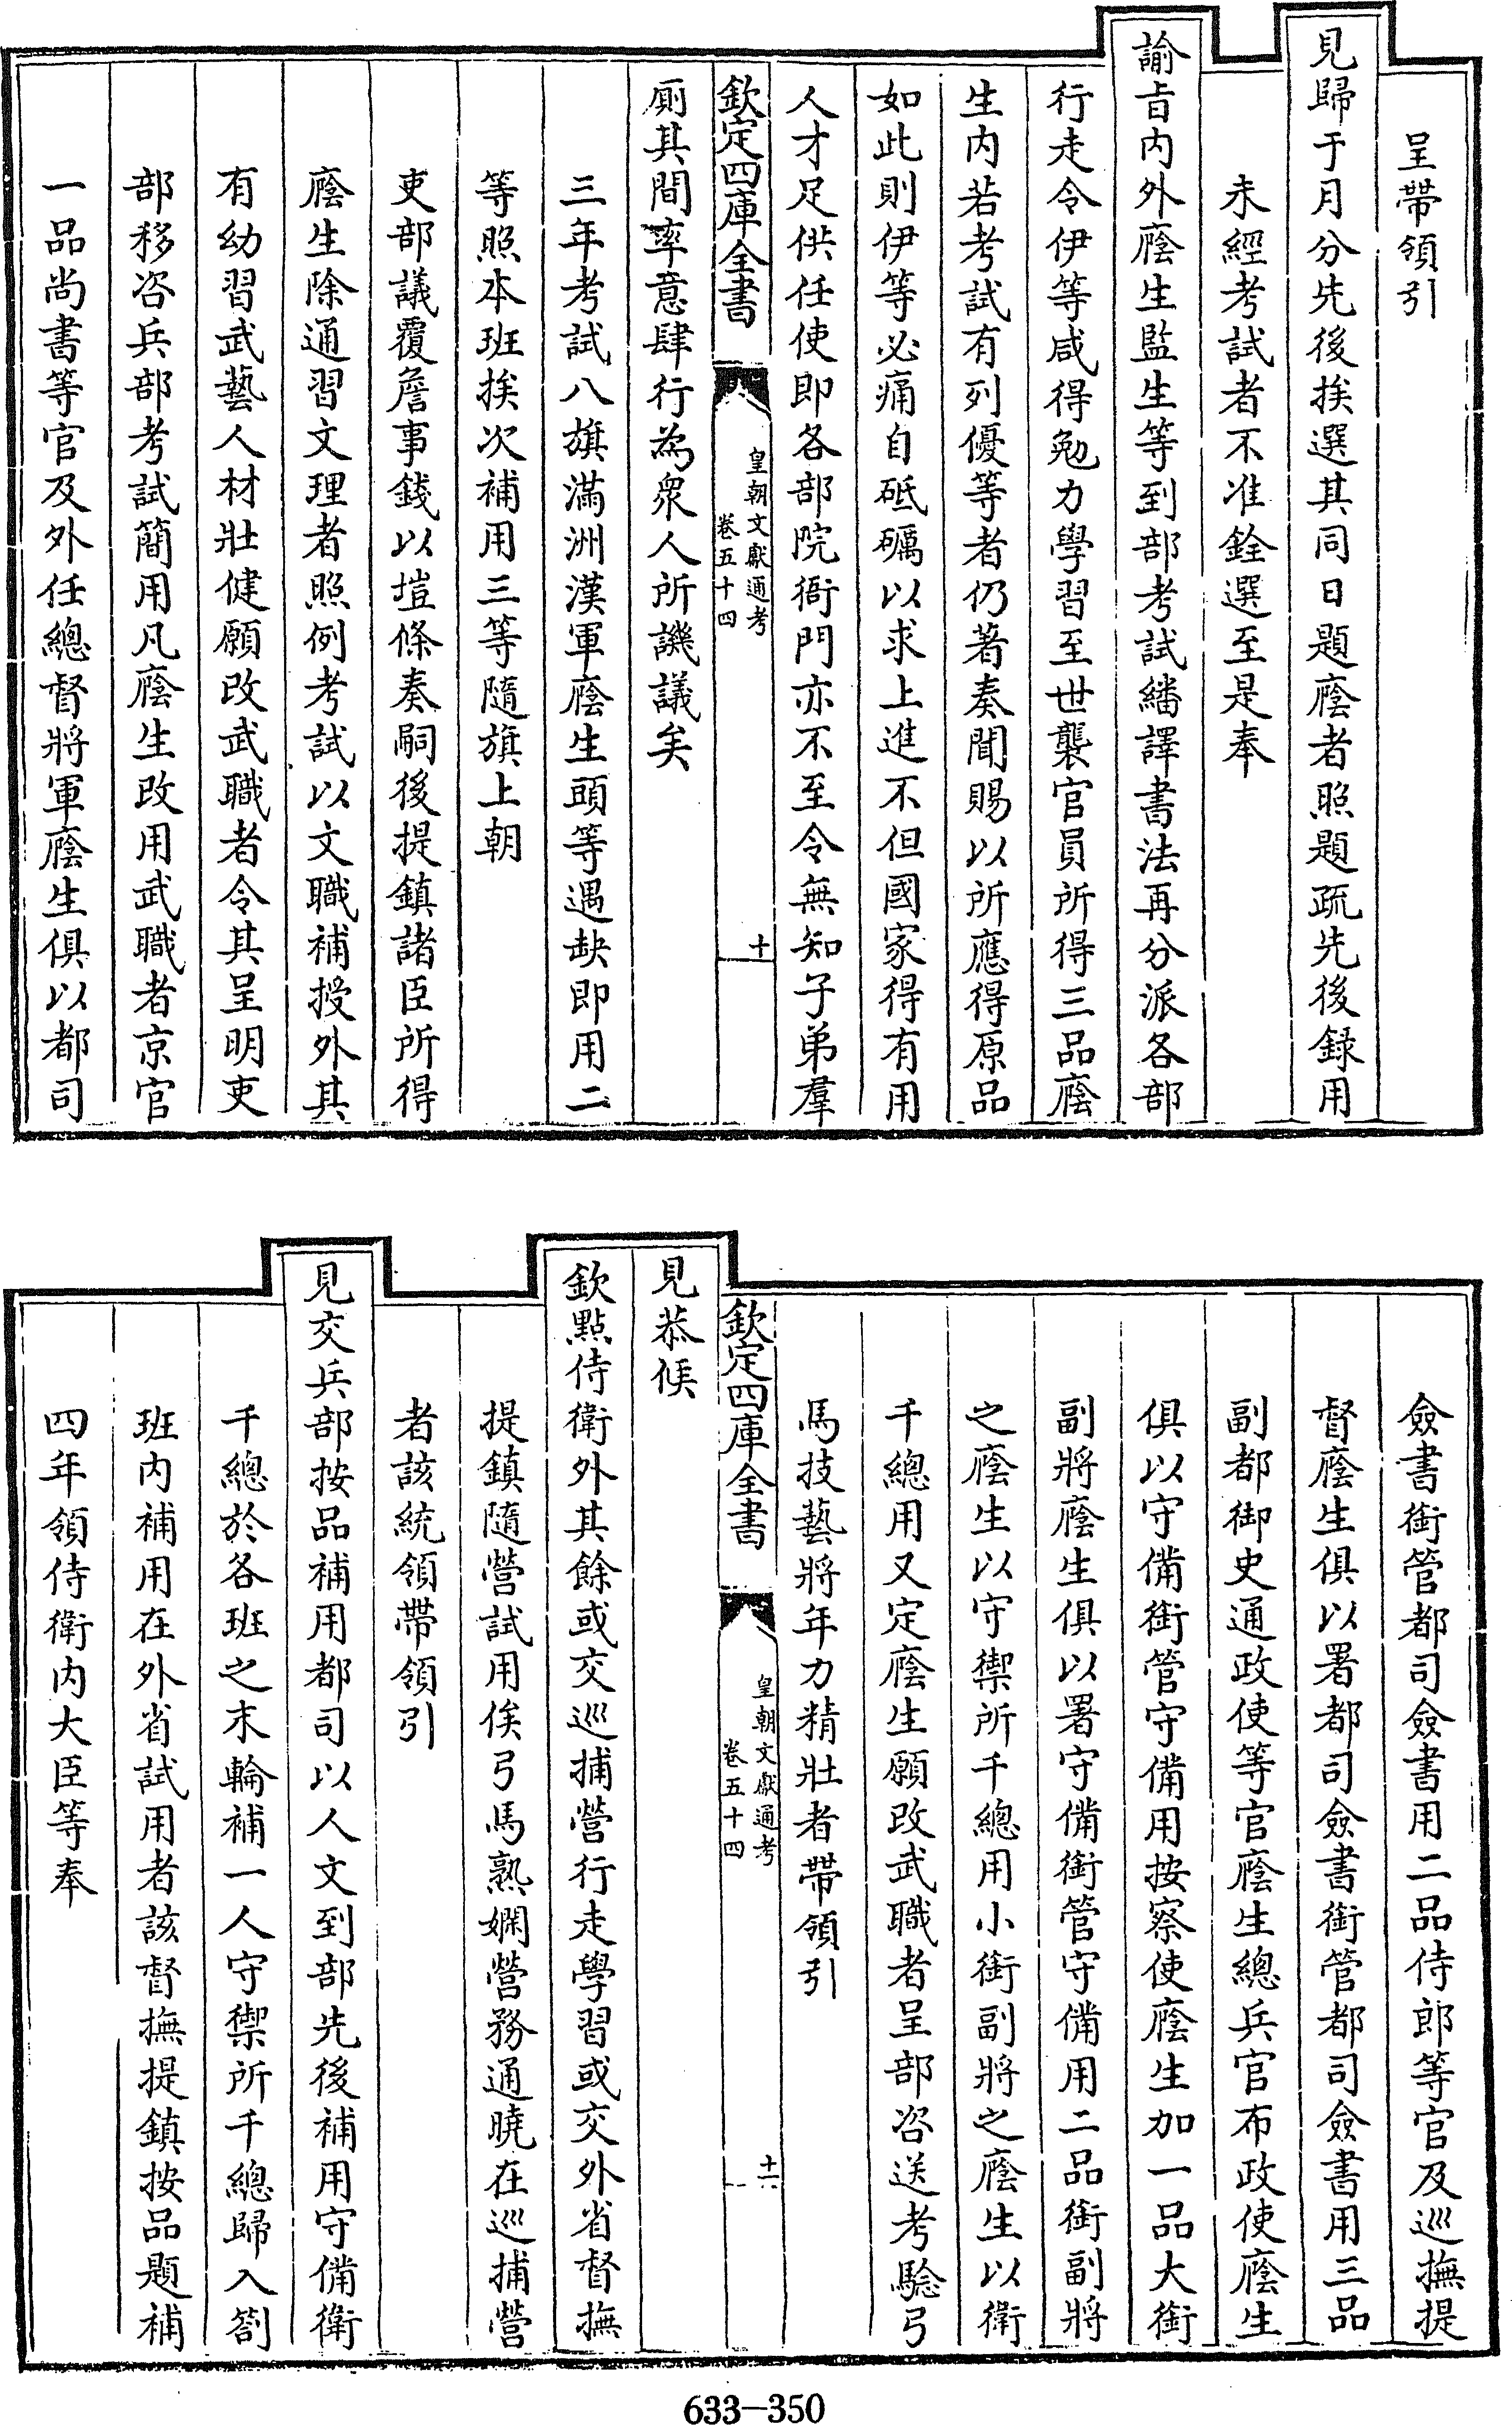 呈帶領引
見歸于月分先後挨選其同日題廕者照題疏先後録用
未經考試者不准銓選至是奉
諭旨内外廕生監生等到部考試繙譯書法再分派各部
行走令伊等咸得勉力學習至世襲官員所得三品廕
生内若考試有列優等者仍著奏聞賜以所應得原品
如此則伊等必痛自砥礪以求上進不但國家得有用
人才足供任使即各部院衙門亦不至令無知子弟羣
欽定四庫全書
皇朝文獻通考
卷五十四
十
厠其間率意肆行為衆人所譏議矣
三年考試八旗滿洲漢軍廕生頭等遇缺即用二
等照本班挨次補用三等隨旗上朝
吏部議覆詹事錢以塏條奏嗣後提鎮諸臣所得
廕生除通習文理者照例考試以文職補授外其
有幼習武藝人材壯健願改武職者令其呈明吏
部移咨兵部考試簡用凡廕生改用武職者京官
一品尚書等官及外任總督將軍廕生俱以都司
僉書銜管都司僉書用二品侍郎等官及巡撫提
督廕生俱以署都司僉書銜管都司僉書用三品
副都御史通政使等官廕生總兵官布政使廕生
俱以守備銜管守備用按察使廕生加一品大銜
副將廕生俱以署守備銜管守備用二品銜副將
之廕生以守禦所千總用小銜副將之廕生以衛
千總用又定廕生願改武職者呈部咨送考驗弓
馬技藝將年力精壯者帶領引
欽定四庫全書
皇朝文獻通考
卷五十四
十一
見恭候
欽點侍衛外其餘或交巡捕營行走學習或交外省督撫
提鎮隨營試用俟弓馬熟嫻營務通曉在巡捕營
者該統領帶領引
見交兵部按品補用都司以人文到部先後補用守備衛
千總於各班之末輪補一人守禦所千總歸入劄
班内補用在外省試用者該督撫提鎮按品題補
四年領侍衛内大臣等奉
633-350